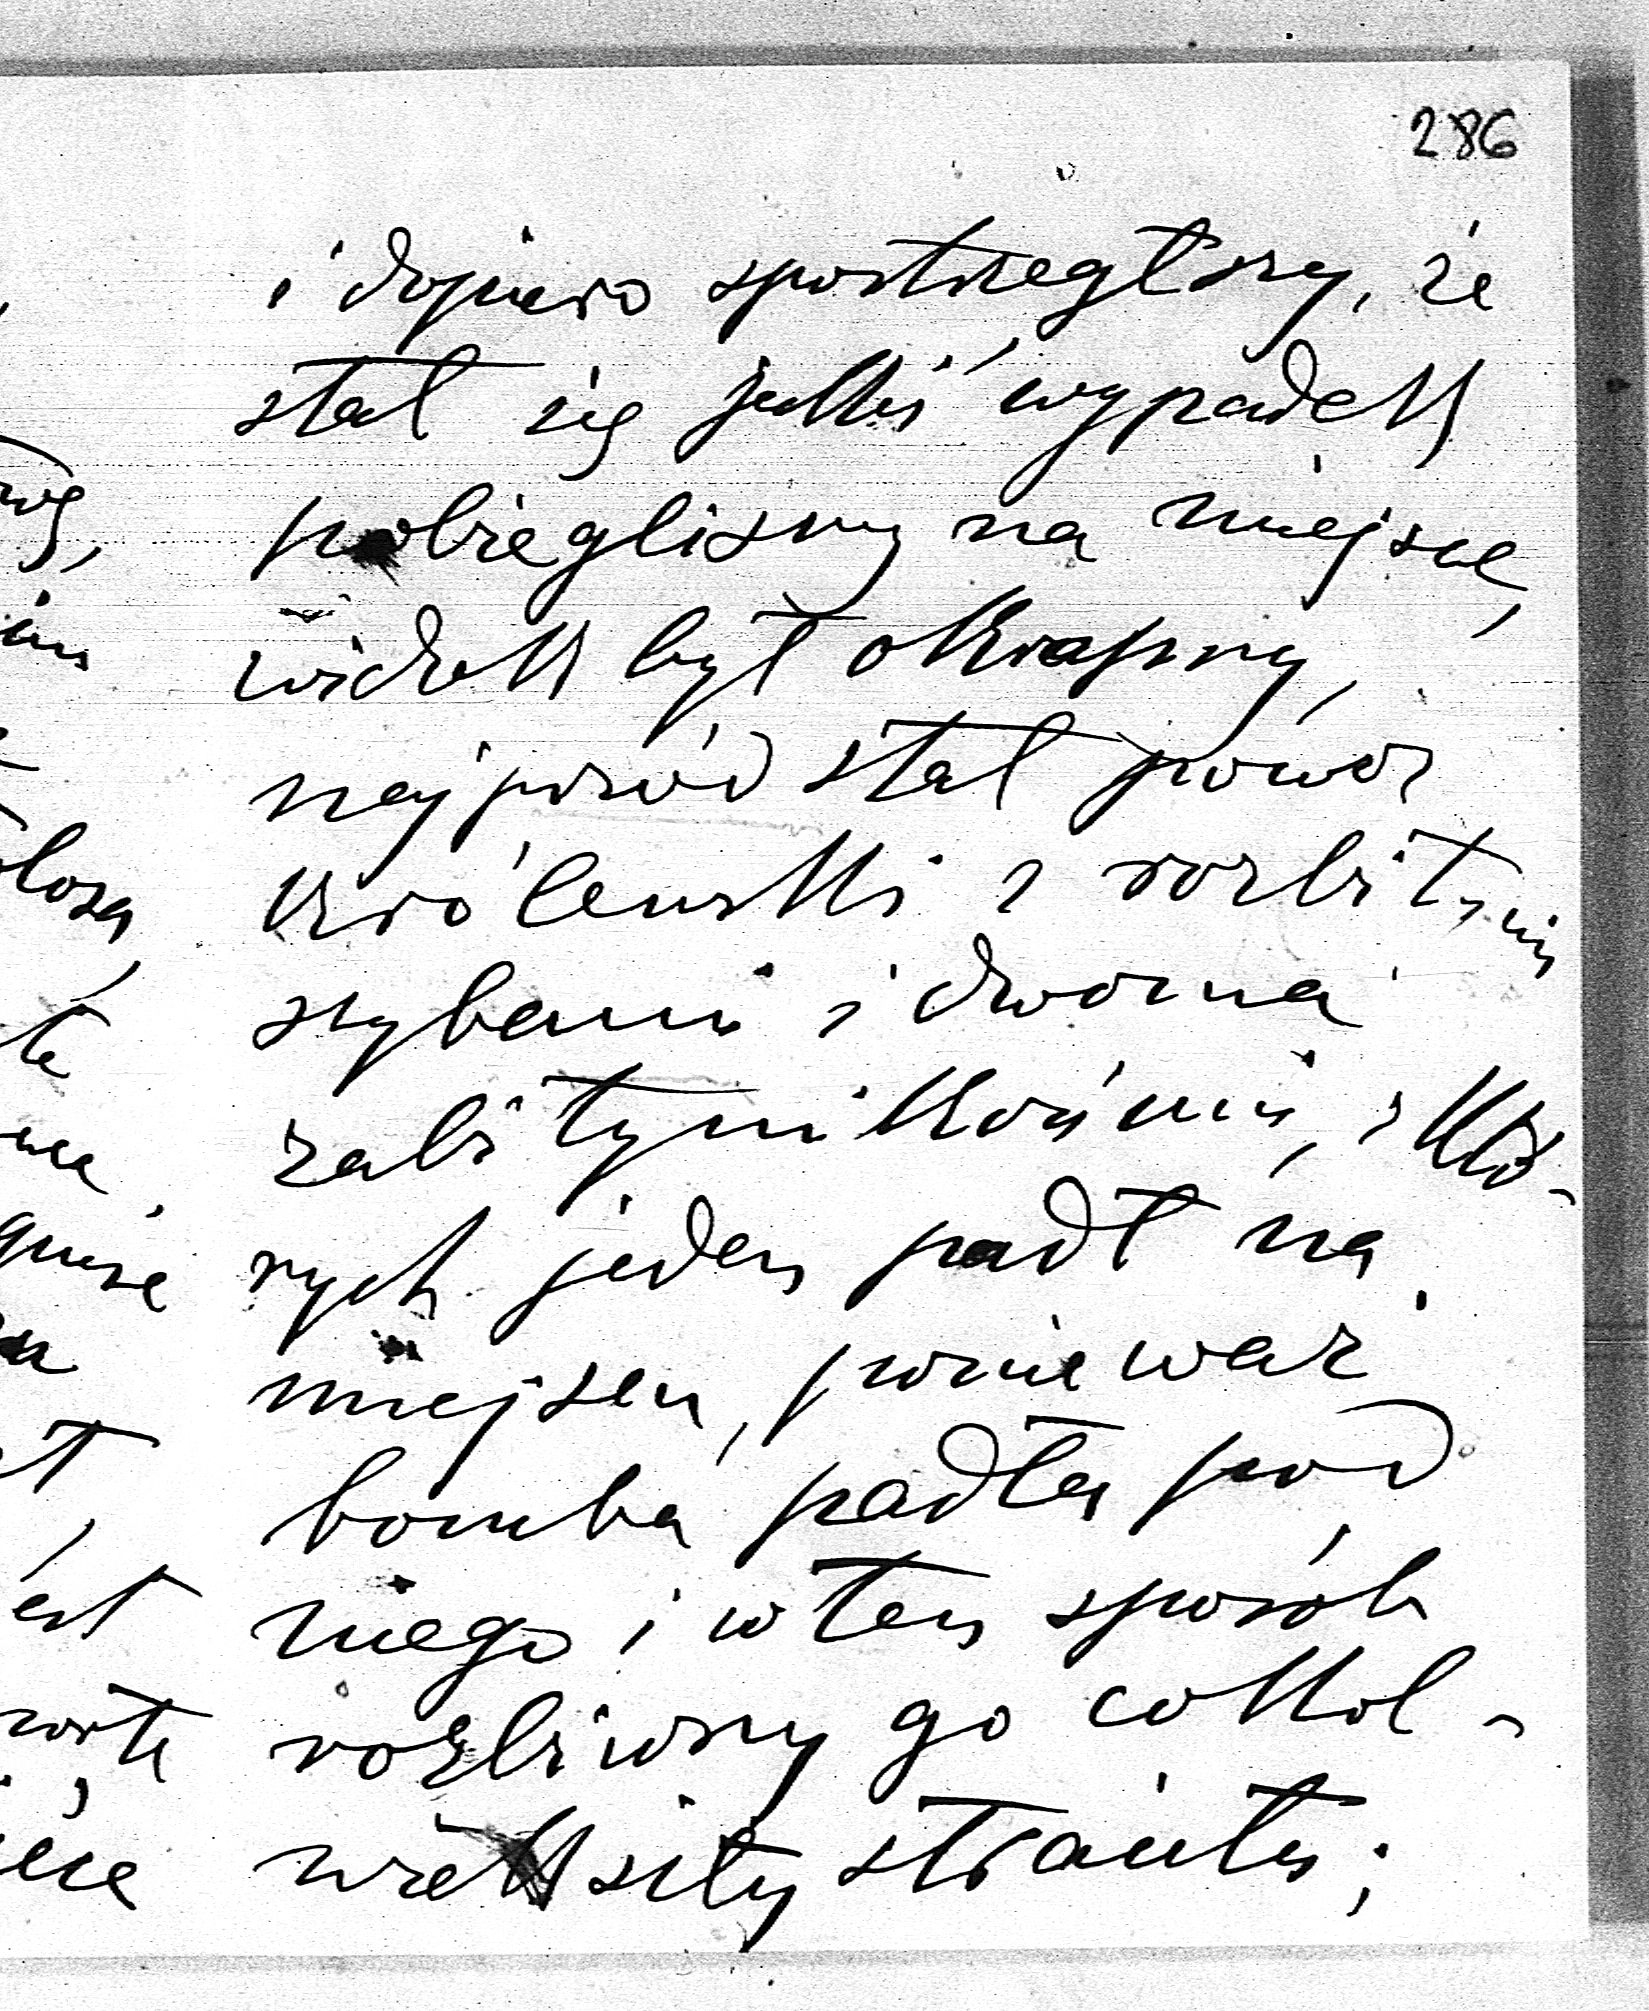 286
i dopiero spostrzegłszy, że
stał się jakiś wypadek
pobiegliśmy na miejsce,
widok był okropny,
najprzód stał powóz
królewski z rozbitymi
szybami i dwoma
zabitymi końmi, z któ-
rych jeden padł na
miejscu, ponieważ
bomba padła pod
niego i w ten sposób
rozbiwszy go cokol-
wiek siły straciła;